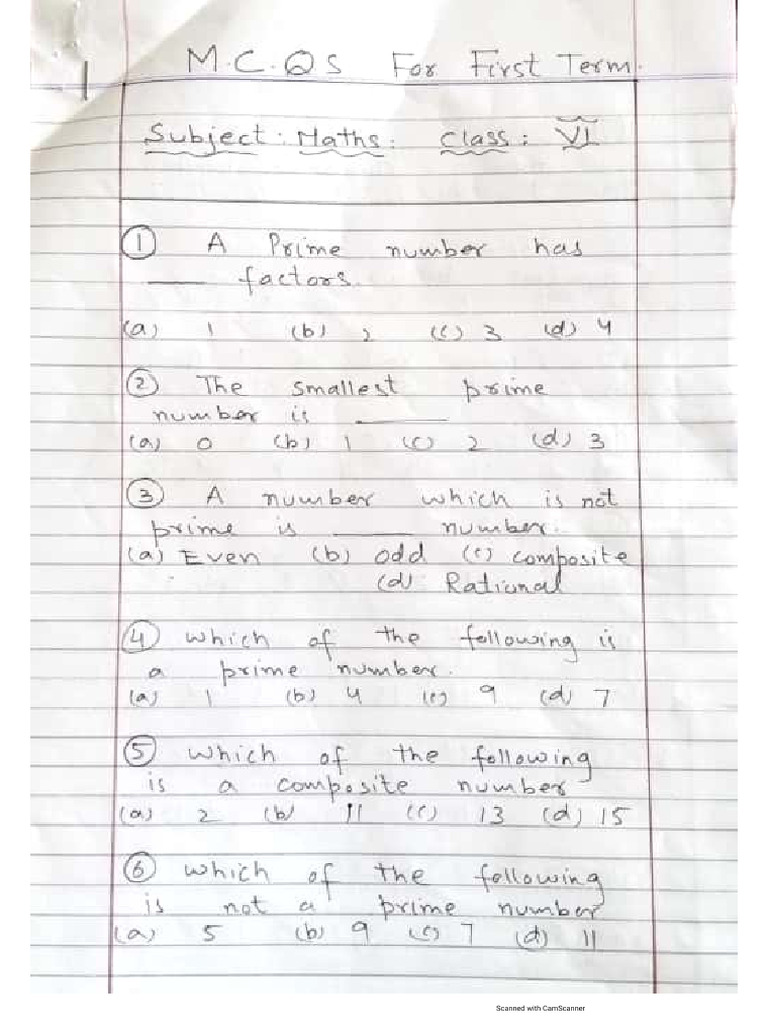 M.C.QS For First Term.
Subject: Maths: Class: VI
① A Prime number has
____ factors.
(a) 1 (b) 2 (c) 3 (d) 4
② The smallest prime
number is ____
(a) 0 (b) 1 (c) 2 (d) 3
③ A number which is not
prime is ____ number.
(a) Even (b) odd (c) composite
(d) Rational
④ which of the following is
a prime number.
(a) 1 (b) 4 (c) 9 (d) 7
⑤ which of the following
is a composite number
(a) 2 (b) 11 (c) 13 (d) 15
⑥ which of the following
is not a prime number
(a) 5 (b) 9 (c) 7 (d) 11
Scanned with CamScanner